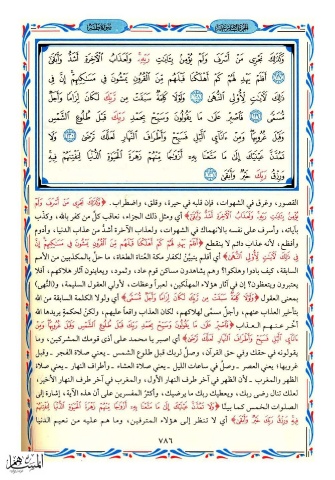 وَكَذَٰلِكَ نَجْزِي مَنْ أَسْرَفَ وَلَمْ يُؤْمِنْ بِآيَاتِ رَبِّهِ وَلَعَذَابُ الْآخِرَةِ أَشَدُّ وَأَبْقَىٰ
﴿١٢٧﴾ أَفَلَمْ يَهْدِ لَهُمْ كَمْ أَهْلَكْنَا قَبْلَهُمْ مِنَ الْقُرُونِ يَمْشُونَ فِي مَسَاكِنِهِمْ إِنَّ فِي
ذَٰلِكَ لَآيَاتٍ لِأُولِي النُّهَىٰ ﴿١٢٨﴾ وَلَوْلَا كَلِمَةٌ سَبَقَتْ مِنْ رَبِّكَ لَكَانَ لِزَامًا وَأَجَلٌ
مُسَمًّى ﴿١٢٩﴾ فَاصْبِرْ عَلَىٰ مَا يَقُولُونَ وَسَبِّحْ بِحَمْدِ رَبِّكَ قَبْلَ طُلُوعِ الشَّمْسِ
وَقَبْلَ غُرُوبِهَا وَمِنْ آنَاءِ اللَّيْلِ فَسَبِّحْ وَأَطْرَافَ النَّهَارِ لَعَلَّكَ تَرْضَىٰ ﴿١٣٠﴾ وَلَا
تَمُدَّنَّ عَيْنَيْكَ إِلَىٰ مَا مَتَّعْنَا بِهِ أَزْوَاجًا مِنْهُمْ زَهْرَةَ الْحَيَاةِ الدُّنْيَا لِنَفْتِنَهُمْ فِيهِ
وَرِزْقُ رَبِّكَ خَيْرٌ وَأَبْقَىٰ ﴿١٣١﴾
القصور، وغرق في الشهوات، فإن قلبه في حيرة، وقلق، واضطراب. ﴿وَكَذَٰلِكَ نَجْزِي مَنْ أَسْرَفَ وَلَمْ
يُؤْمِنْ بِآيَاتِ رَبِّهِ وَلَعَذَابُ الْآخِرَةِ أَشَدُّ وَأَبْقَىٰ﴾ أي ومثل ذلك الجزاء، نعاقب كلَّ من كفر بالله، وكذب
بآياته، وأسرف على نفسه بالانهماك في الشهوات، ولعذاب الآخرة أشدُّ من عذاب الدنيا، وأدوم
وأفظع، لأنه عذاب دائم لا ينقطع ﴿أَفَلَمْ يَهْدِ لَهُمْ كَمْ أَهْلَكْنَا قَبْلَهُمْ مِنَ الْقُرُونِ يَمْشُونَ فِي مَسَاكِنِهِمْ إِنَّ
فِي ذَٰلِكَ لَآيَاتٍ لِأُولِي النُّهَىٰ﴾ أي أفلم يتبيَّن لكفار مكة العُتاة الطغاة، ما حلَّ بالمكذبين من الأمم
السابقة، كيف بادوا وهلكوا؟ وهم يشاهدون مساكن قوم عاد، وثمود، ويعاينون آثار هلاكهم، أفلا
يعتبرون ويتعظون؟ إن في آثار هؤلاء المهلكين، لعبراً وعظات، لأولي العقول السليمة، و(النُّهى)
بمعنى العقول ﴿وَلَوْلَا كَلِمَةٌ سَبَقَتْ مِنْ رَبِّكَ لَكَانَ لِزَامًا وَأَجَلٌ مُسَمًّى﴾ أي ولولا الكلمة السابقة من الله
بتأخير العذاب عنهم، وأجلٌ مسمَّى لهلاكهم، لكان العذاب واقعاً عليهم، ولكنْ لحكمةٍ يريدها الله
أخّر عنهم العذاب ﴿فَاصْبِرْ عَلَىٰ مَا يَقُولُونَ وَسَبِّحْ بِحَمْدِ رَبِّكَ قَبْلَ طُلُوعِ الشَّمْسِ وَقَبْلَ غُرُوبِهَا وَمِنْ
آنَاءِ اللَّيْلِ فَسَبِّحْ وَأَطْرَافَ النَّهَارِ لَعَلَّكَ تَرْضَىٰ﴾ أي اصبر يا محمد على أذى قومك المشركين، وما
يقولونه في حقك وفي حق القرآن، وصلِّ لربك قبل طلوع الشمس - يعني صلاة الفجر - وقبل
غروبها؛ يعني العصر - وصلِّ في ساعات الليل - يعني صلاة العشاء - وأطراف النهار - يعني صلاة
الظهر والمغرب - لأن الظهر في آخر طرف النهار الأول، والمغرب في آخر طرف النهار الأخير،
لعلك تنال رضى ربك، ويعطيك ربك ما يرضيك، وأكثرُ المفسرين على أن هذه الآية، إشارة إلى
الصلوات الخمس كما بينّا ﴿وَلَا تَمُدَّنَّ عَيْنَيْكَ إِلَىٰ مَا مَتَّعْنَا بِهِ أَزْوَاجًا مِنْهُمْ زَهْرَةَ الْحَيَاةِ الدُّنْيَا لِنَفْتِنَهُمْ
فِيهِ وَرِزْقُ رَبِّكَ خَيْرٌ وَأَبْقَىٰ﴾ أي لا تنظر إلى هؤلاء المترفين، وما هم عليه من نعيم الدنيا
٧٨٦